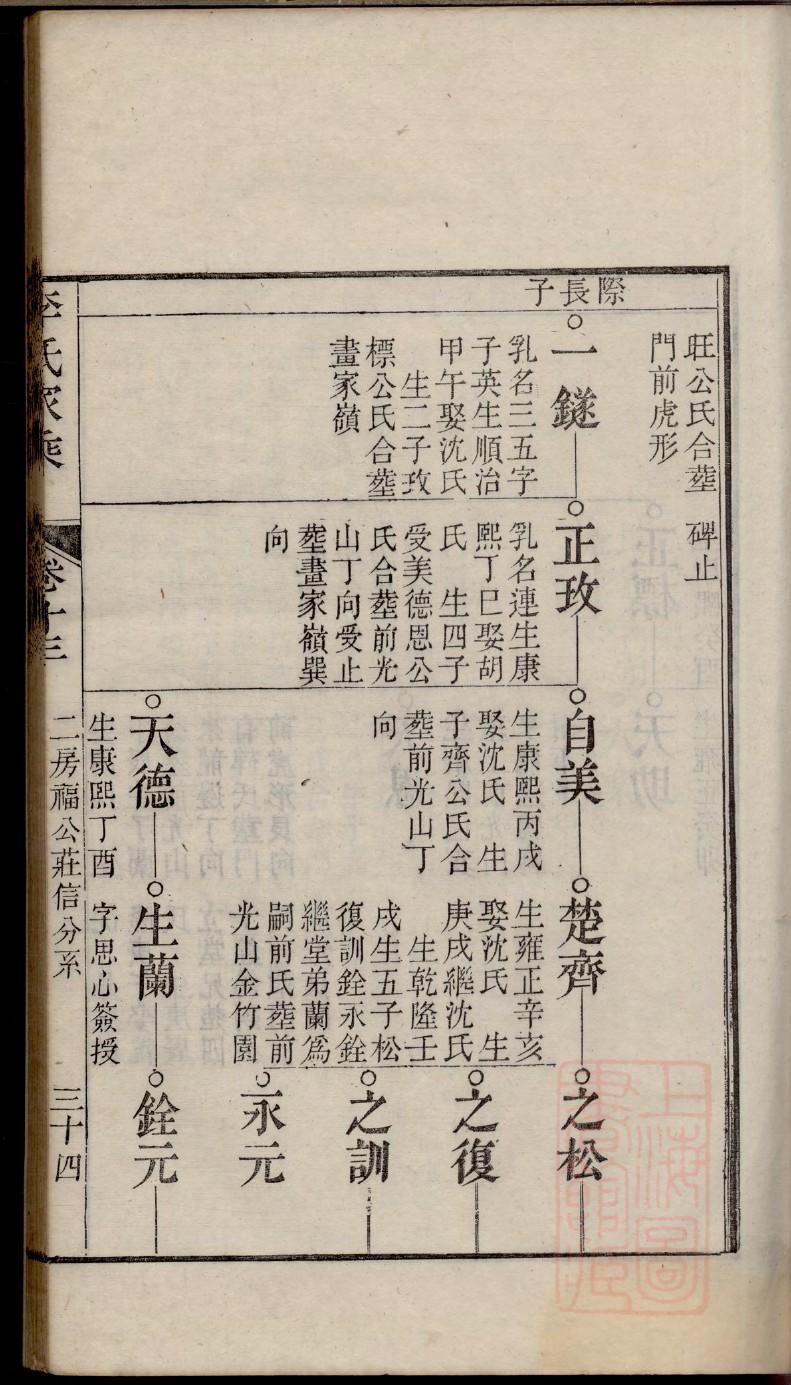 際長子
旺公氏合塟　碑止
門前虎形
一鐩
乳名三五字
子英生順治
甲午娶沈氏
生二子玫
標公氏合塟
畫家嶺
正玫
乳名連生康
熙丁巳娶胡
氏　生四子
受美德恩公
氏合塟前光
山丁向受止
塟畫家嶺巽
向
自美
生康熙丙戌
娶沈氏　生
子齊公氏合
塟前光山丁
向
楚齊
生雍正辛亥
娶沈氏　生
庚戌繼沈氏
生乾隆壬
戌生五子松
復訓銓永銓
繼堂弟蘭爲
嗣前氏塟前
光山金竹園
之松
之復
之訓
永元
天德
生康熙丁酉
生蘭
字思心簽授
銓元
李氏家乘
卷十三
二房福公莊信分系
三十四
上海圖書館藏